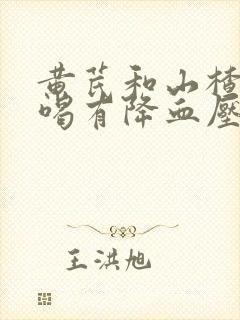 黄芪和山楂
喝有降血壓
王洪旭